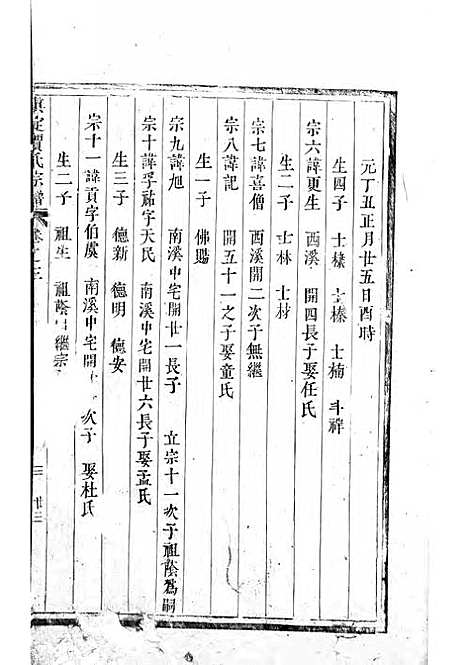 元丁丑正月廿五日酉時
生四子 士榛 士榛 士楠 斗祥
宗六諱更生 西溪 開四長子娶任氏
生二子 士林 士材
宗七諱喜僧 西溪開二次子無繼
宗八諱記 開五十一之子娶童氏
生一子 佛賜
宗九諱旭 南溪中宅開廿一長子 立宗十一次子祖蔭爲嗣
宗十諱孚祐字天民 南溪中宅開廿六長子娶孟氏
生三子 德新 德明 德安
宗十一諱貢字伯虞 南溪中宅開 次子 娶杜氏
生二子 祖生 祖蔭 繼宗
真定賈氏宗譜 卷之三